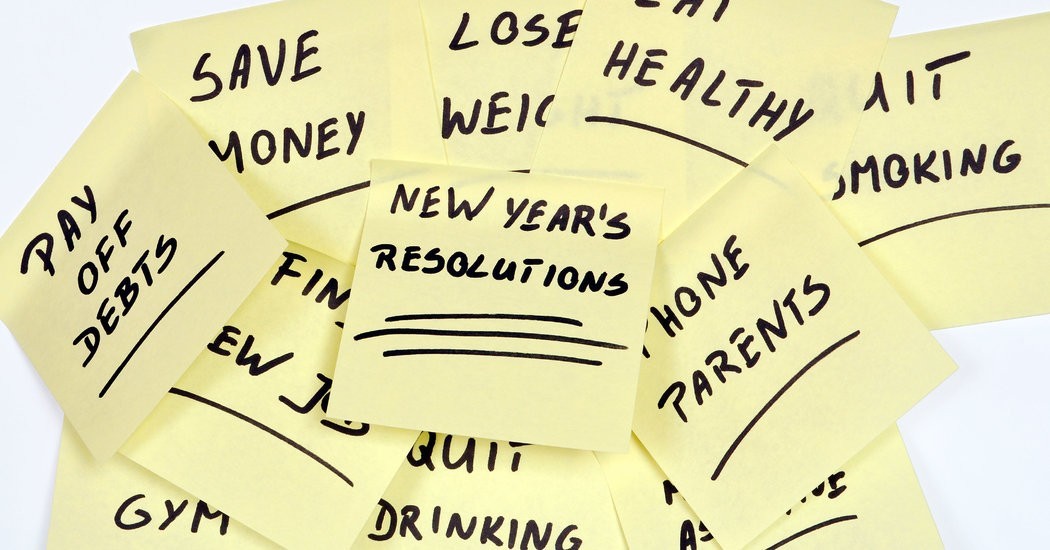 SAVE
MONEY
LOSE
WEIG
EAT
HEALTHY
QUIT
SMOKING
PAY
OFF
DEBTS
NEW YEAR'S
RESOLUTIONS
FIN
EW JOB
PHONE
PARENTS
GYM
QUIT
DRINKING